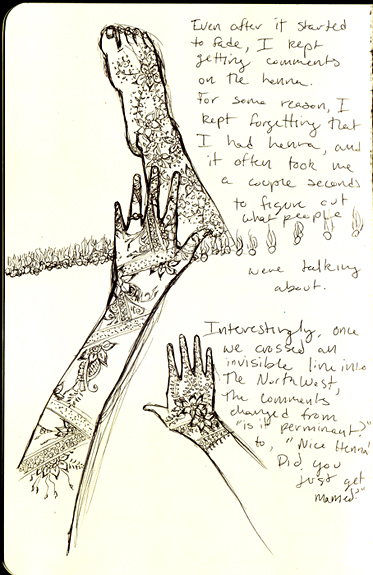 Even after it started
to fade, I kept
getting comments
on the henna.
For some reason, I
kept forgetting that
I had henna, and
it often took me
a couple seconds
to figure out
what people
were talking
about.
Interestingly, once
we crossed an
invisible line into
the NorthWest,
the comments
changed from
"is it perminent?"
to, "Nice Henna!
Did you
just get
married?"